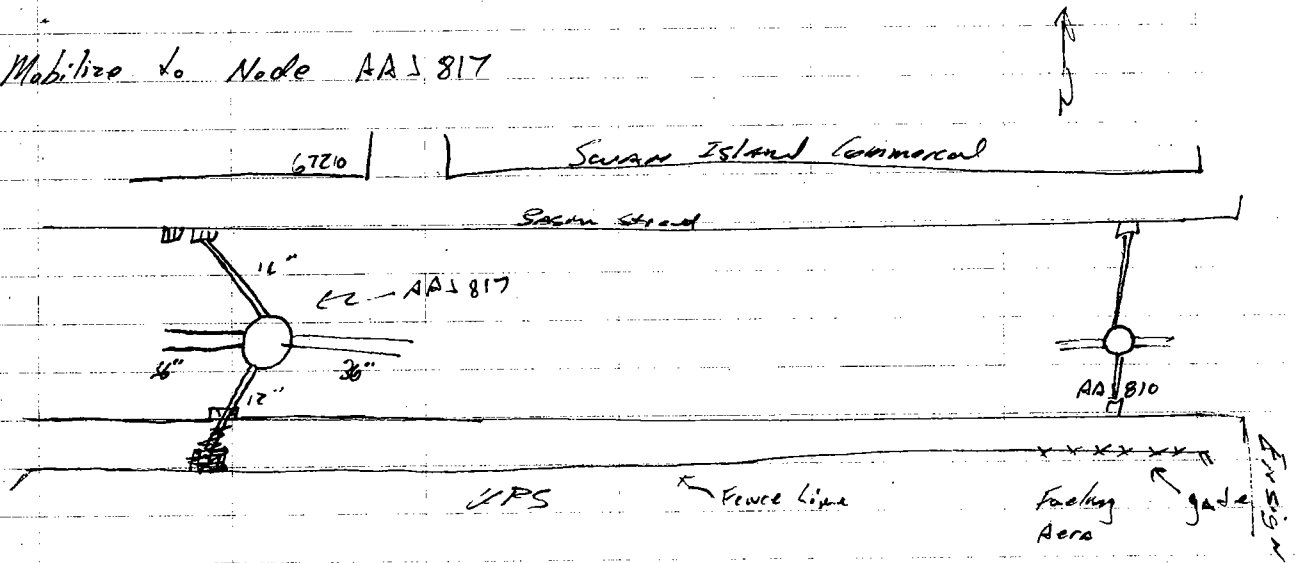 Mobilize to Node AAJ 817
N
6720
Swan Island Commercal
Basin Street
12"
← AAJ 817
36"
36"
12"
AAJ 810
UPS
Fence Line
Fueling
Aera
gate
Ensign